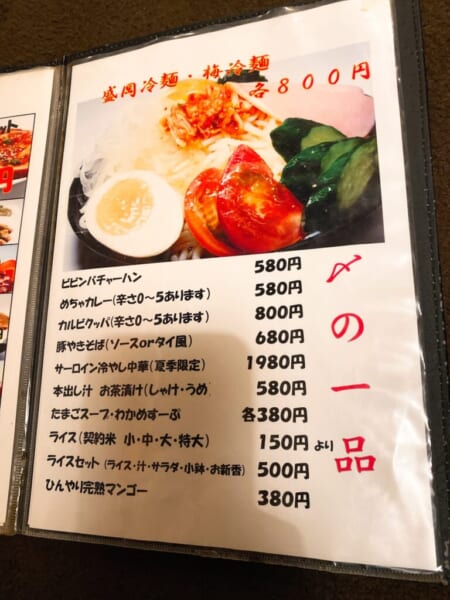 盛岡冷麺・梅冷麺
各８００円
〆の一品
ビビンバチャーハン 580円
めちゃカレー(辛さ0〜5あります) 580円
カルビクッパ(辛さ0〜5あります) 800円
豚やきそば(ソースorタイ風) 680円
サーロイン冷やし中華(夏季限定) 1980円
本出し汁 お茶漬け(しゃけ・うめ) 580円
たまごスープ・わかめすーぷ 各380円
ライス(契約米 小・中・大・特大) 150円より
ライスセット(ライス・汁・サラダ・小鉢・お新香) 500円
ひんやり完熟マンゴー 380円
ット
円